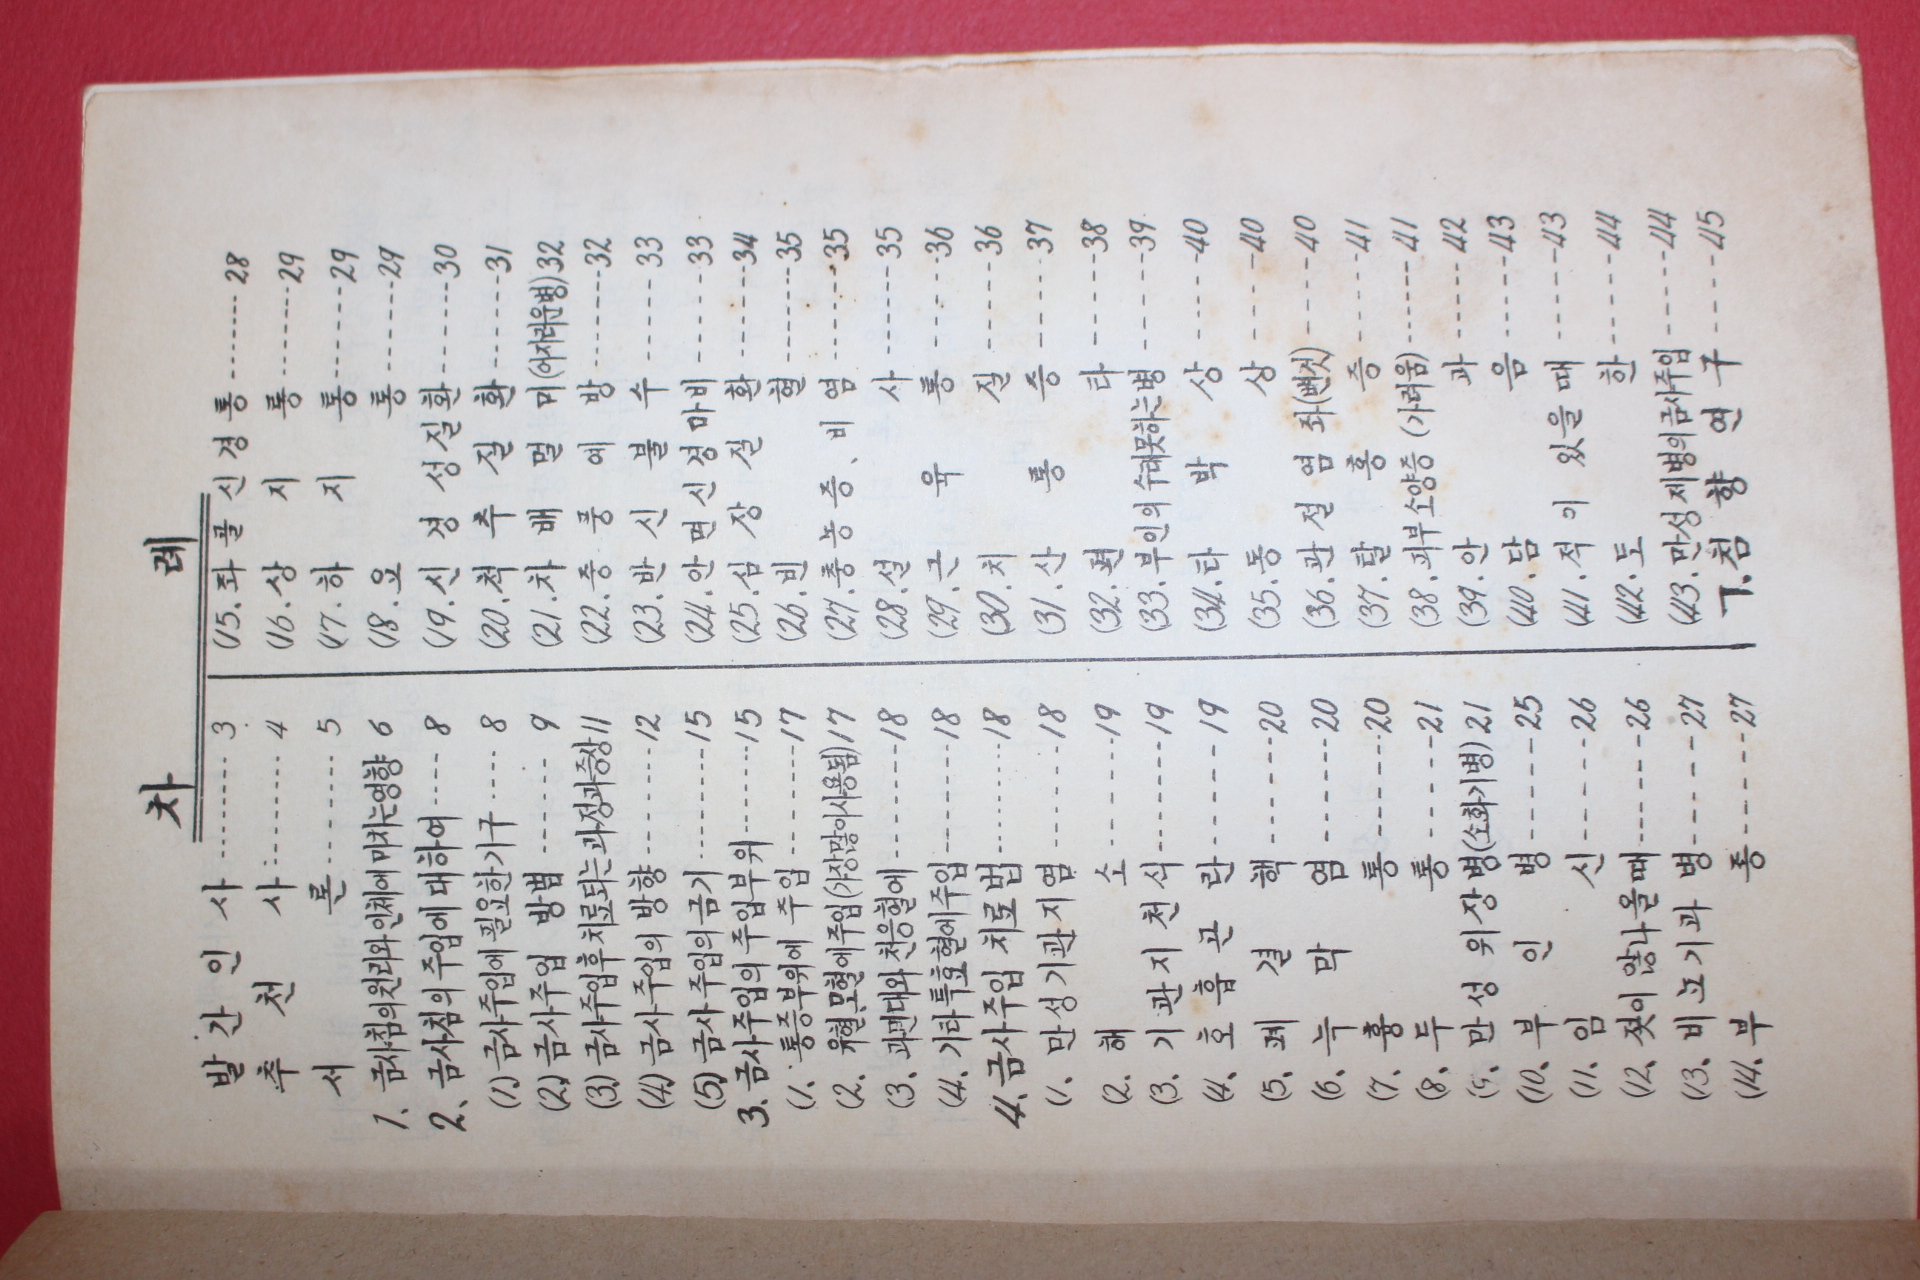 차 례
발간인사 -------- 3
추천사 -------- 4
서론 -------- 5
1. 금사침의 원리와 인체에 미치는 영향 6
2. 금사침의 주입에 대하여 ---- 8
(1.) 금사주입에 필요한 기구 ---- 8
(2.) 금사주입 방법 ------ 9
(3.) 금사주입후 치료되는 과정과 증상 11
(4.) 금사주입의 방향 -------12
(5.) 금사주입의 금기 --------15
3. 금사주입의 주입부위 -------15
(1. 통증부위에 주입 -------17
(2. 유혈, 모혈에 주입 (가장많이사용됨)17
(3. 과민대와 천응혈에 -------18
(4. 기타 특효혈에 주입 -------18
4. 금사주입 치료법 --------18
(1. 만성기관지염 ------18
(2. 해소 ------19
(3. 기관지천식 -------19
(4. 호흡곤란 ------19
(5. 폐결핵 ------20
(6. 늑막염 ------20
(7. 흉통 ------20
(8. 두통 -----21
(9. 만성 위장병(소화기병) 21
(10. 부인병 -----25
(11. 임신 -----26
(12. 젖이 않나올때 ------26
(13. 비뇨기과 병 -----27
(14. 부종 -----27
(15. 좌골신경통 -------28
(16. 상지통 -------29
(17. 하지통 ------29
(18. 요통 ------29
(19. 신경성질환 ------30
(20. 척추질환 ------31
(21. 차배멀미(어지러운병)32
(22. 중풍예방 -------32
(23. 반신불수 ----- 33
(24. 안면신경마비 -----33
(25. 심장질환 ------34
(26. 빈혈 ------35
(27. 충농증、비염 ------35
(28. 설사 ------35
(29. 근육통 ------36
(30. 치질 -----36
(31. 산통증 -----37
(32. 편타 -----38
(33. 부인의 수태못하는병 -----39
(34. 타박상 -----40
(35. 동상 ----40
(36. 관절염좌(삔것) ----40
(37. 탈홍증 -----41
(38. 피부소양증 (가려움) ------ 41
(39. 안과 -----42
(40. 담음 -----43
(41. 적이 있을때 -----43
(42. 도한 -----44
(43. 만성제병의 금사주입 -----44
7. 침향연구 ----45